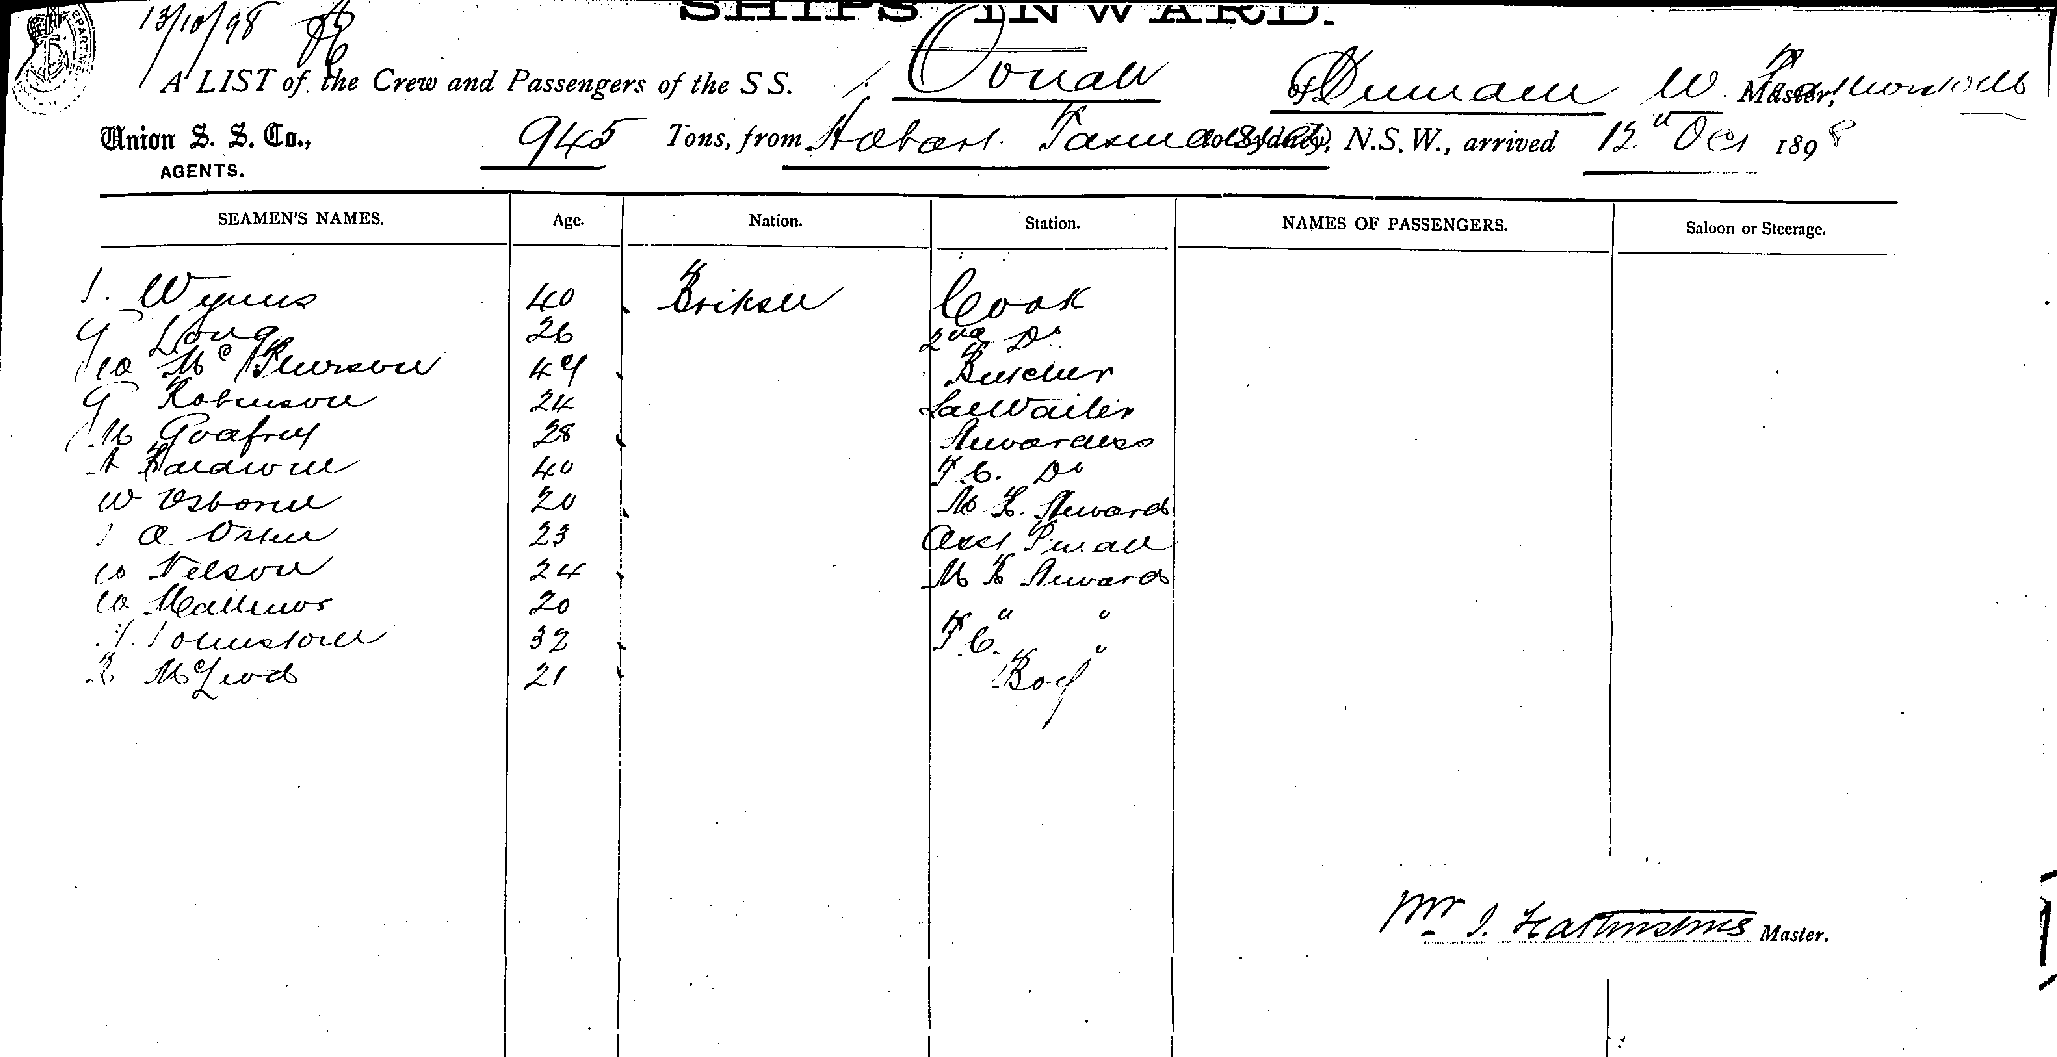 13/10/98
SHIPS INWARD.
A LIST of the Crew and Passengers of the S S. Oonah of Dunedin W. Featherstone Master,
Union S. S. Co., 945 Tons, from Hobart Tasmania to Sydney, N.S.W., arrived 12th Oct 1898
AGENTS.
SEAMEN'S NAMES. Age. Nation. Station. NAMES OF PASSENGERS. Saloon or Steerage.
J. Wynns 40 British Cook
G Long 26 2nd Do
Wm McPherson 49 Butcher
G Robinson 24 Sal Waiter
M Godfrey 28 Stewardess
A Baldwin 40 F.C. Do
W Osborne 20 M. R. Steward
J A 23 Asst
W Nelson 24 M R Steward
W Mathews 20 " "
J. Johnstone 32 F.C. "
R McLeod 21 Boy
Wm J. Featherstone Master.